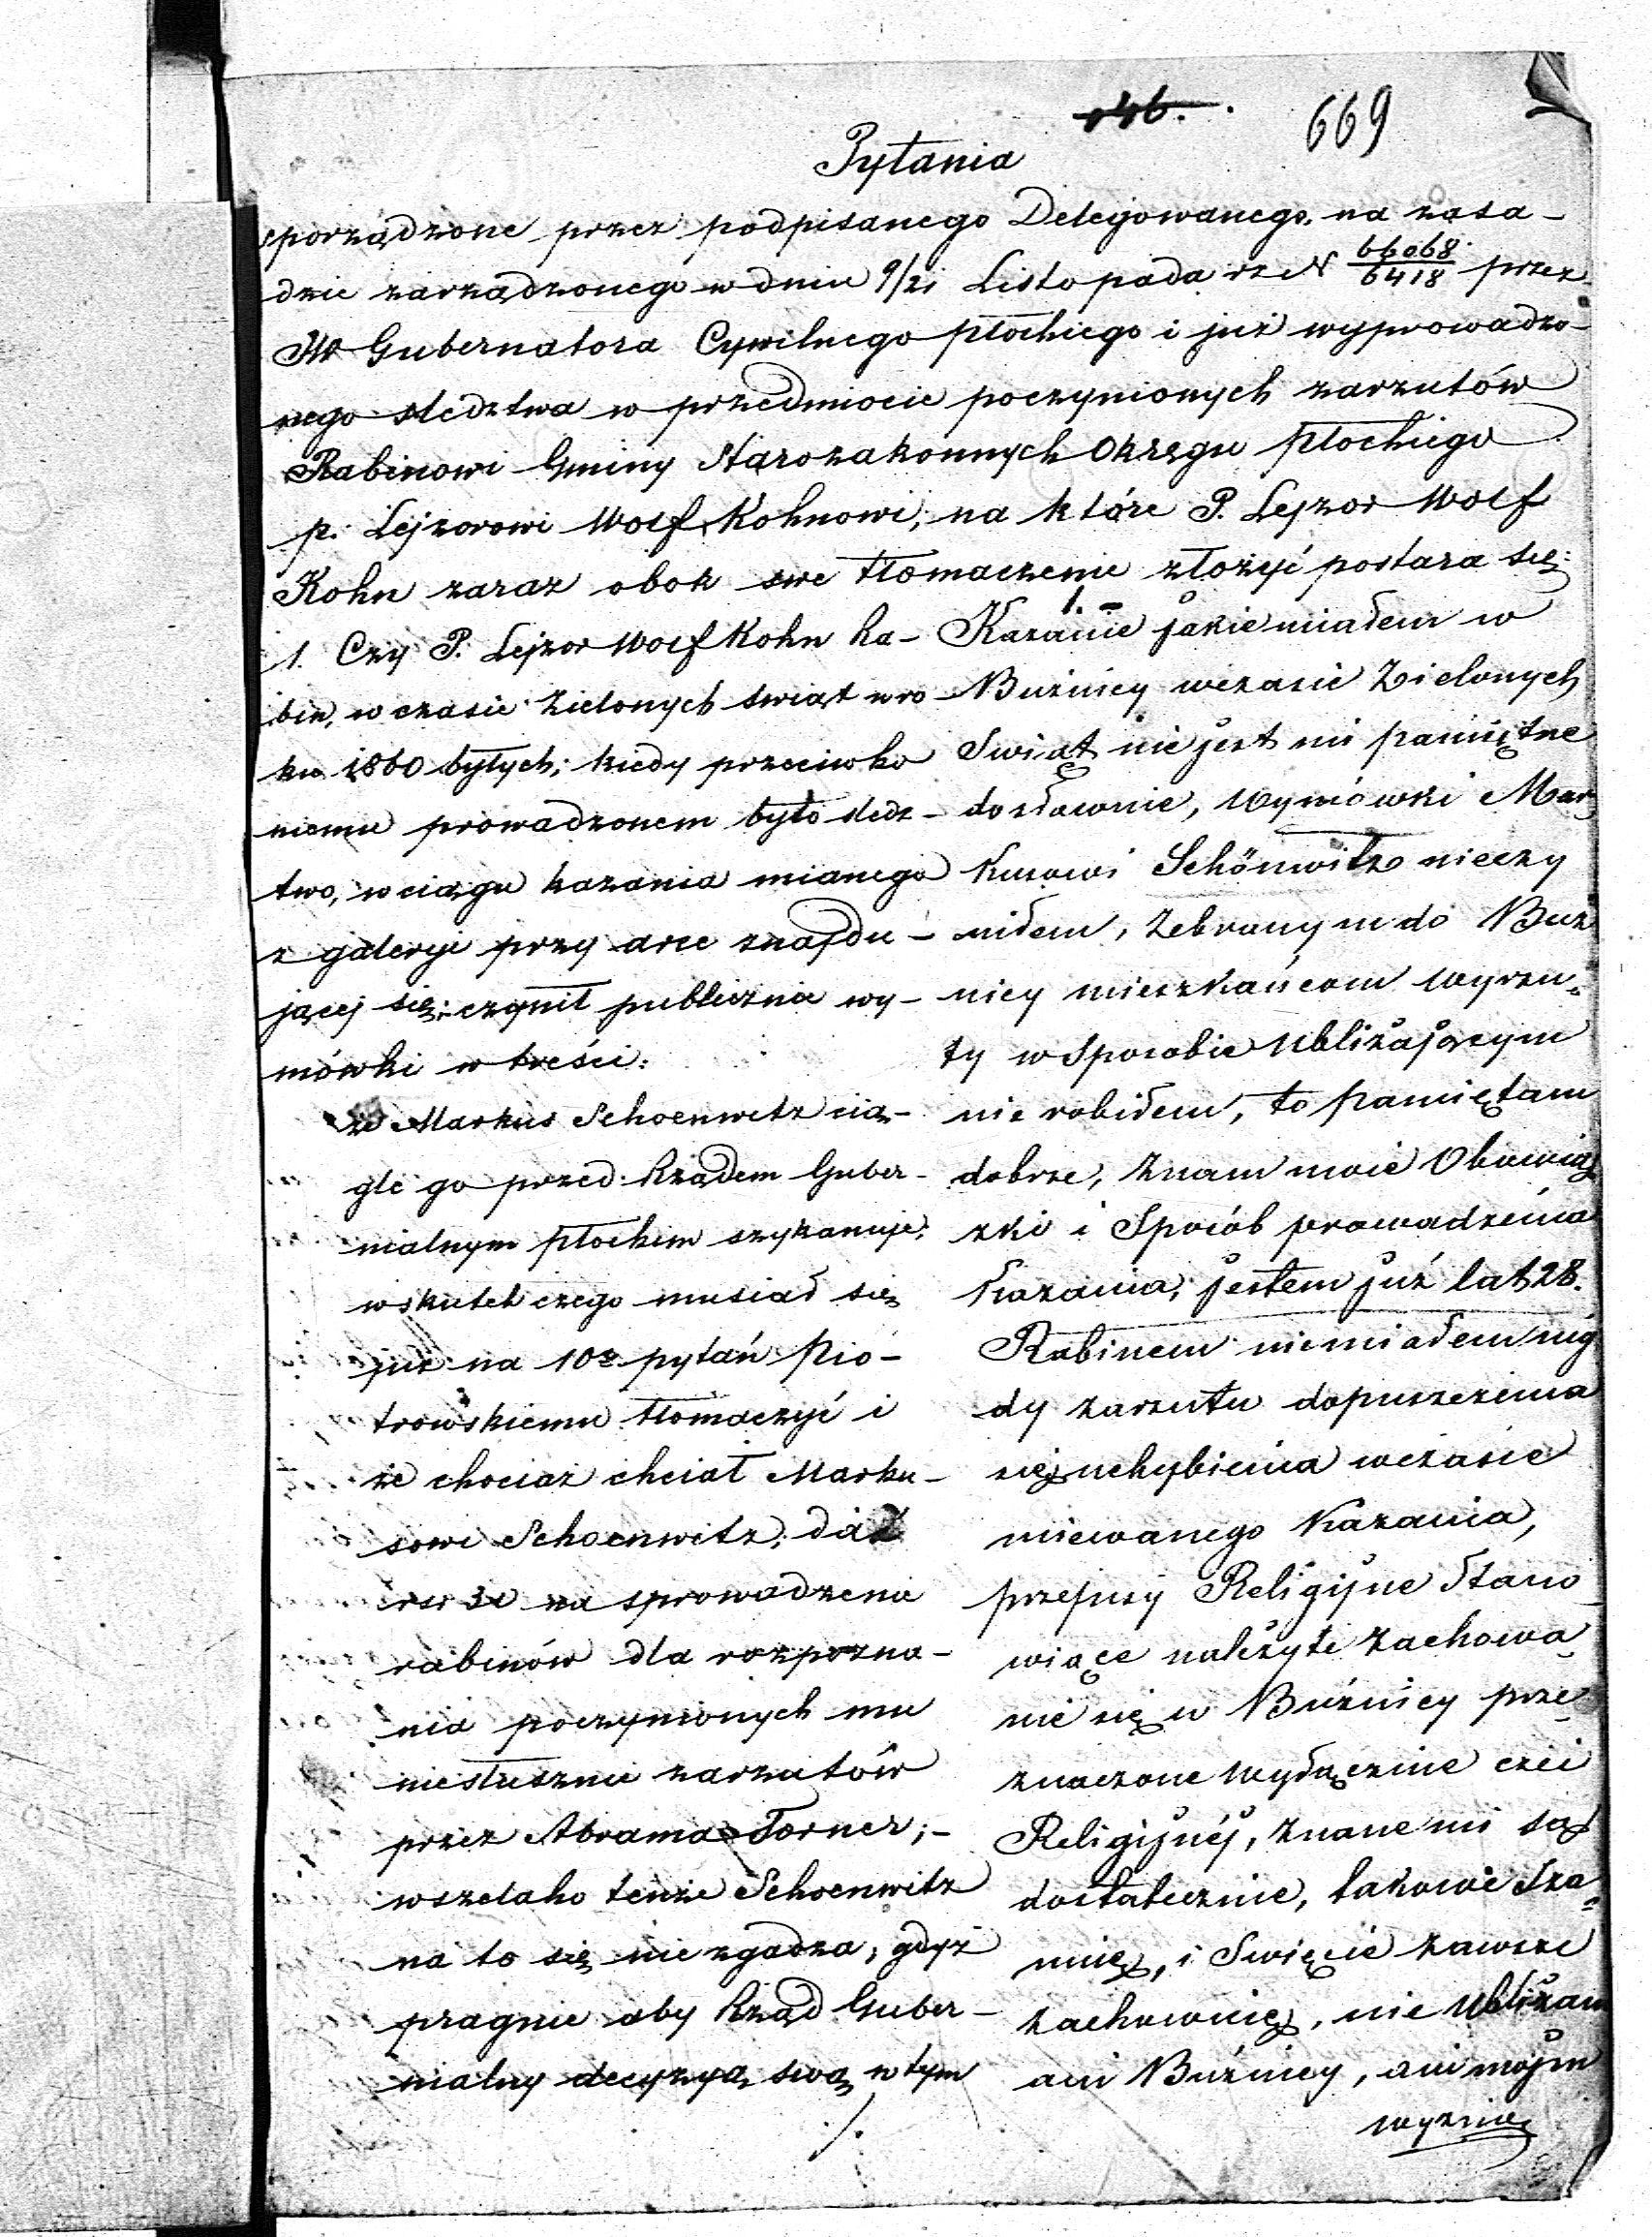 669
Pytania
sporządzone przez podpisanego Delegowanego na zasa-
dzie zarządzonego w dniu 9/21 Listopada rz N 66068/6418 przez
JW Gubernatora Cywilnego Płockiego i już wyprowadzo-
nego śledztwa w przedmiocie poczynionych zarzutów
Rabinowi Gminy Starozakonnych Okręgu Płockiego
p. Lejzorowi Wolf Kohnowi; na które P. Lejzor Wolf
Kohn zaraz obok swe tłomaczenie złożyć postara się:
1. Czy P. Lejzor Wolf Kohn Ra-
bin, w czasie Zielonych świąt w ro-
ku 1860 byłych; kiedy przeciwko
niemu prowadzonem było śledz-
two, w ciągu kazania mianego
z galeryi przy arce znajdu-
jącej się: czynił publicznie wy-
mówki w treści:
że Markus Schoenwitz cią-
gle go przed Rządem Guber-
nialnym Płockim szykanuje;
wskutek czego musiał się
już na 102 pytań Pio-
trowskiemu tłomaczyć i
że chociaż chciał Marku-
sowi Schoenwitz; dać
rsr 30 na sprowadzenie
rabinów dla rozpozna-
nia poczynionych mu
niesłusznie zarzutów
przez Abrama Torner;-
wszelako tenże Schoenwitz
na to się nie zgadza, gdyż
pragnie aby Rząd Guber-
nialny decyzyą swą w tym
./.
1.-
Kazanie jakie miałem w
Buźnicy wczasie Zielonych
Swiąt nie jest mi pamiętne
dosłownie, wymówki Mar
kusowi Schönwitz nieczy
niłem, Zebranym do Buź
nicy mieszkańcom wyrzu-
ty w Sposobie ubliżającym
nie robiłem, to pamiętam
dobrze, Znam moie Obowią
zki i Sposób prowadzenia
Kazania; jestem już lat 28.
Rabinem niemiałem nig
dy zarzutu dopuszczenia
się uchybienia wczasie
miewanego Kazania,
przepisy Religijne Stano
wiące należyte zachowa
nie się w Buźnicy prze
znaczone wyłącznie czci
Religijnéj, znane mi są
dostatecznie, takowe sza-
nuję, i Swięcie zawsze
zachowuię, nie ubliżam
ani Buźnicy, ani mojm
wyznie